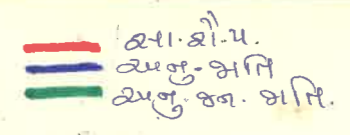 સા.શૈ.પ.
અનુ. જાતિ
અનુ. જન. જાતિ.